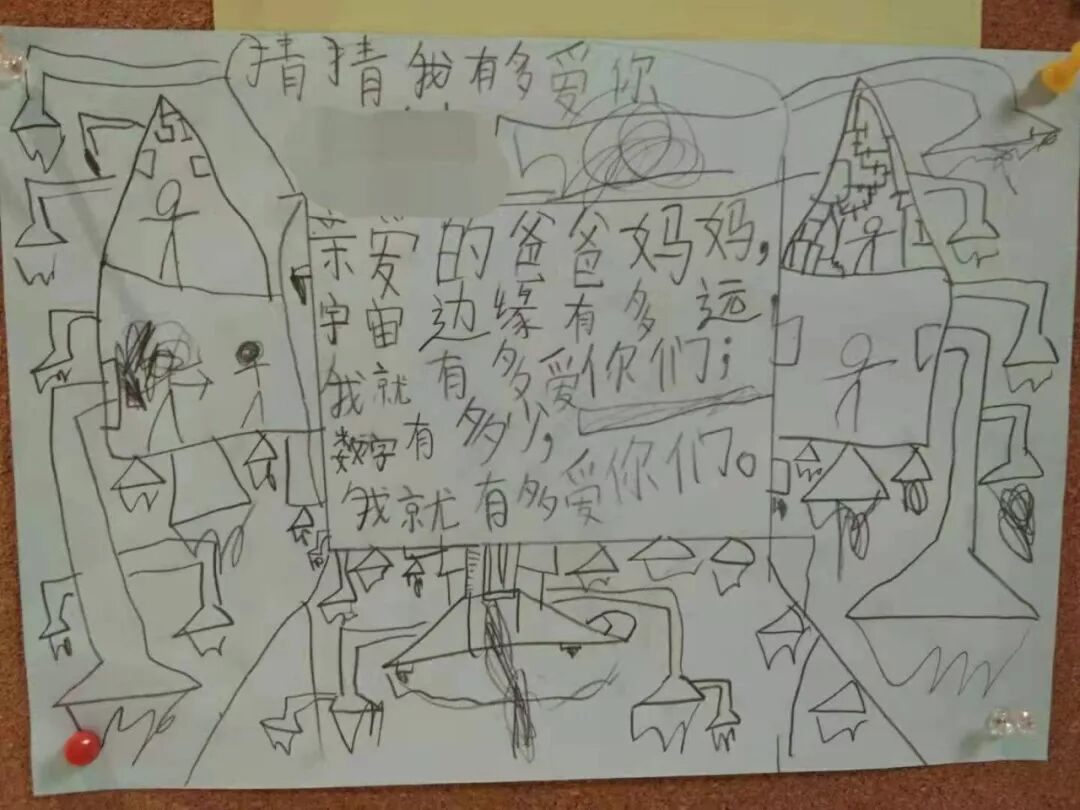 猜猜我有多爱你
亲爱的爸爸妈妈，
宇宙边缘有多远，
我就有多爱你们；
数字有多少，
我就有多爱你们。